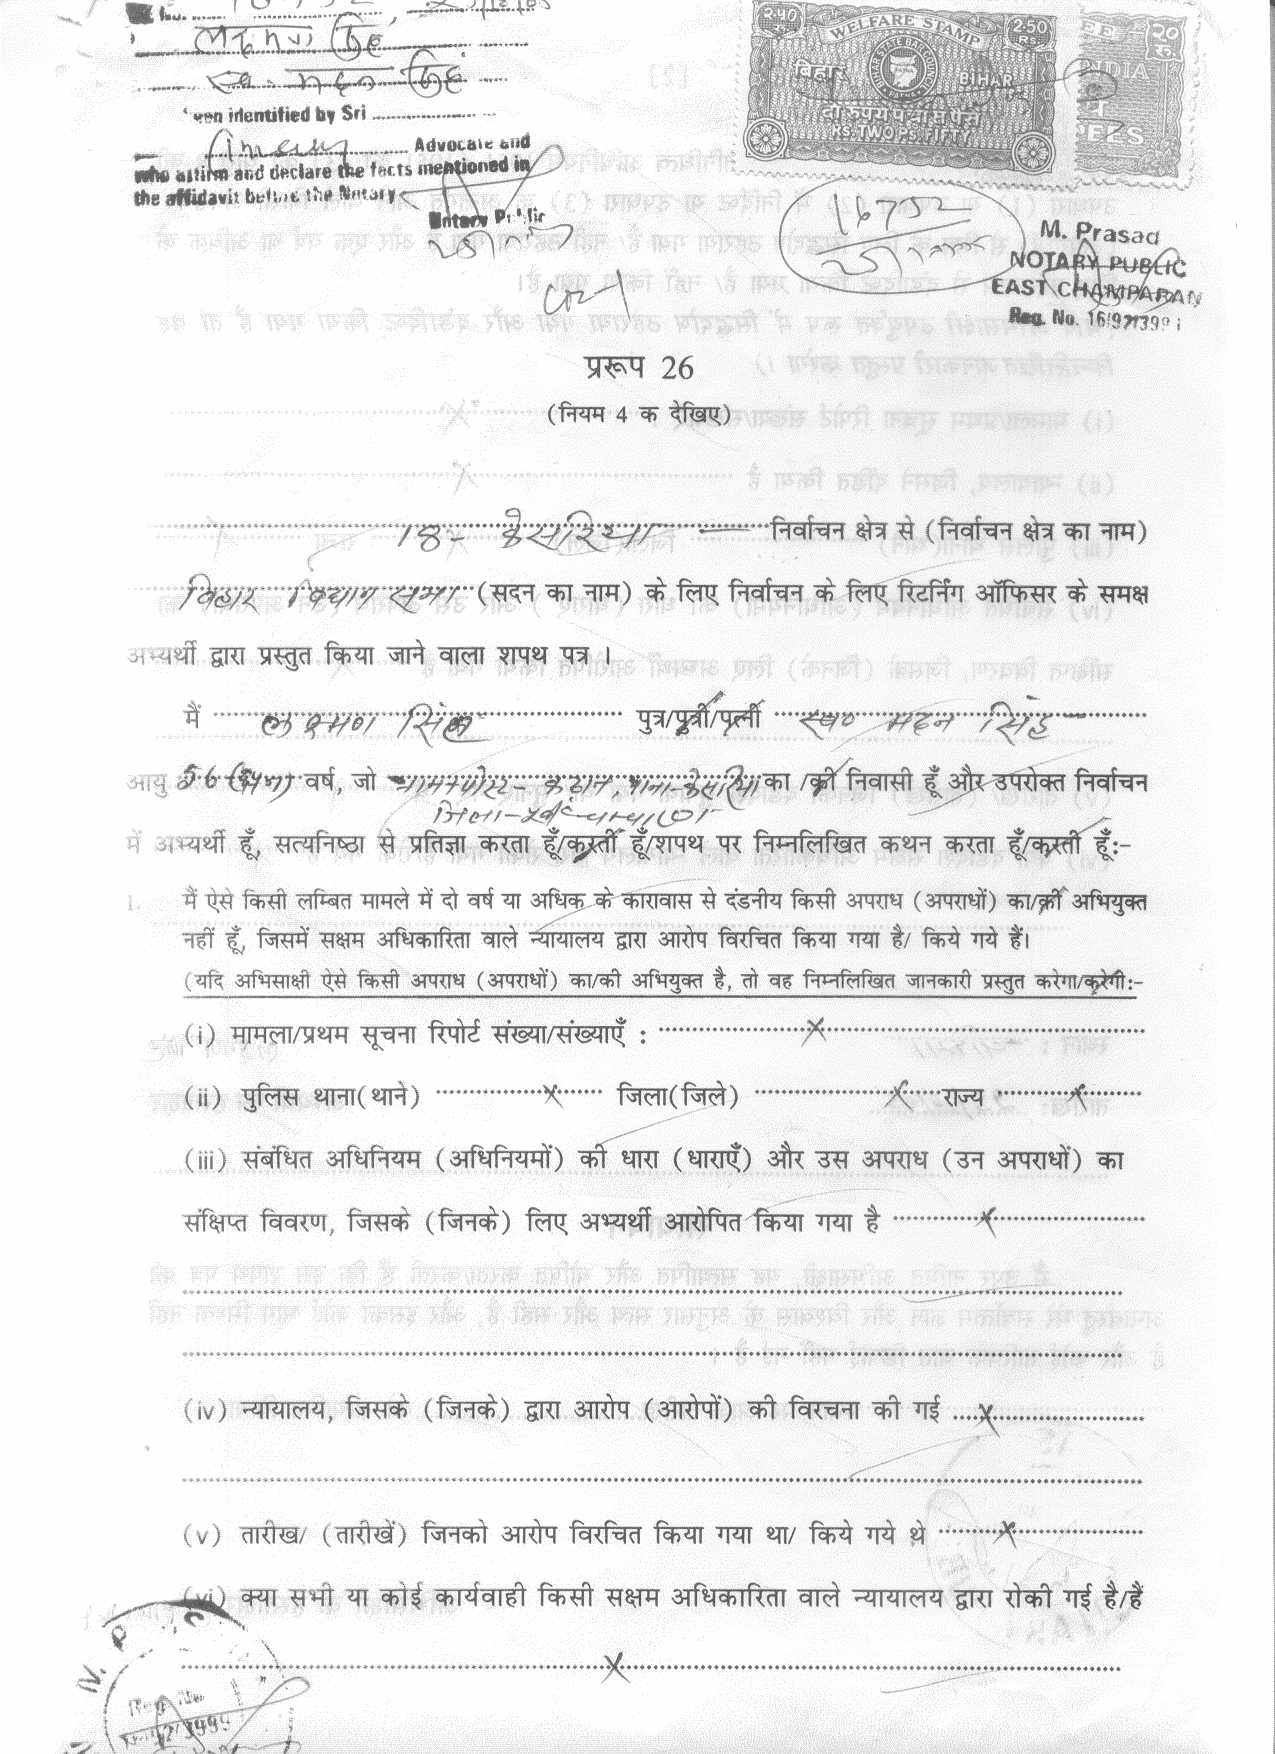 लक्ष्मण सिंह
स्व. मदन सिंह
been identified by Sri
Advocate and
who affirm and declare the facts mentioned in
the affidavit before the Notary
Notary Public
2.50 WELFARE STAMP 2.50 RS.
बिहार BIHAR
दो रुपये पचास पैसे
RS. TWO PS. FIFTY
INDIA
२० रु.
16752
M. Prasad
NOTARY PUBLIC
EAST CHAMPARAN
Reg. No. 16/92/1399
प्ररूप 26
(नियम 4 क देखिए)
18- केसरिया निर्वाचन क्षेत्र से (निर्वाचन क्षेत्र का नाम)
बिहार विधान सभा (सदन का नाम) के लिए निर्वाचन के लिए रिटर्निंग ऑफिसर के समक्ष
अभ्यर्थी द्वारा प्रस्तुत किया जाने वाला शपथ पत्र ।
मैं लक्ष्मण सिंह पुत्र/पुत्री/पत्नी स्व० मदन सिंह
आयु 56 वर्ष, जो ग्राम+पोस्ट- कढान थाना-केसरिया का /की निवासी हूँ और उपरोक्त निर्वाचन
जिला-पूर्वी चम्पारण
में अभ्यर्थी हूँ, सत्यनिष्ठा से प्रतिज्ञा करता हूँ/करती हूँ/शपथ पर निम्नलिखित कथन करता हूँ/करती हूँ:-
1. मैं ऐसे किसी लम्बित मामले में दो वर्ष या अधिक के कारावास से दंडनीय किसी अपराध (अपराधों) का/की अभियुक्त
नहीं हूँ, जिसमें सक्षम अधिकारिता वाले न्यायालय द्वारा आरोप विरचित किया गया है/ किये गये हैं।
(यदि अभिसाक्षी ऐसे किसी अपराध (अपराधों) का/की अभियुक्त है, तो वह निम्नलिखित जानकारी प्रस्तुत करेगा/करेगी:-
(i) मामला/प्रथम सूचना रिपोर्ट संख्या/संख्याएँ : X
(ii) पुलिस थाना(थाने) X जिला(जिले) X राज्य X
(iii) संबंधित अधिनियम (अधिनियमों) की धारा (धाराएँ) और उस अपराध (उन अपराधों) का
संक्षिप्त विवरण, जिसके (जिनके) लिए अभ्यर्थी आरोपित किया गया है X
(iv) न्यायालय, जिसके (जिनके) द्वारा आरोप (आरोपों) की विरचना की गई X
(v) तारीख/ (तारीखें) जिनको आरोप विरचित किया गया था/ किये गये थे X
(vi) क्या सभी या कोई कार्यवाही किसी सक्षम अधिकारिता वाले न्यायालय द्वारा रोकी गई है/हैं
X